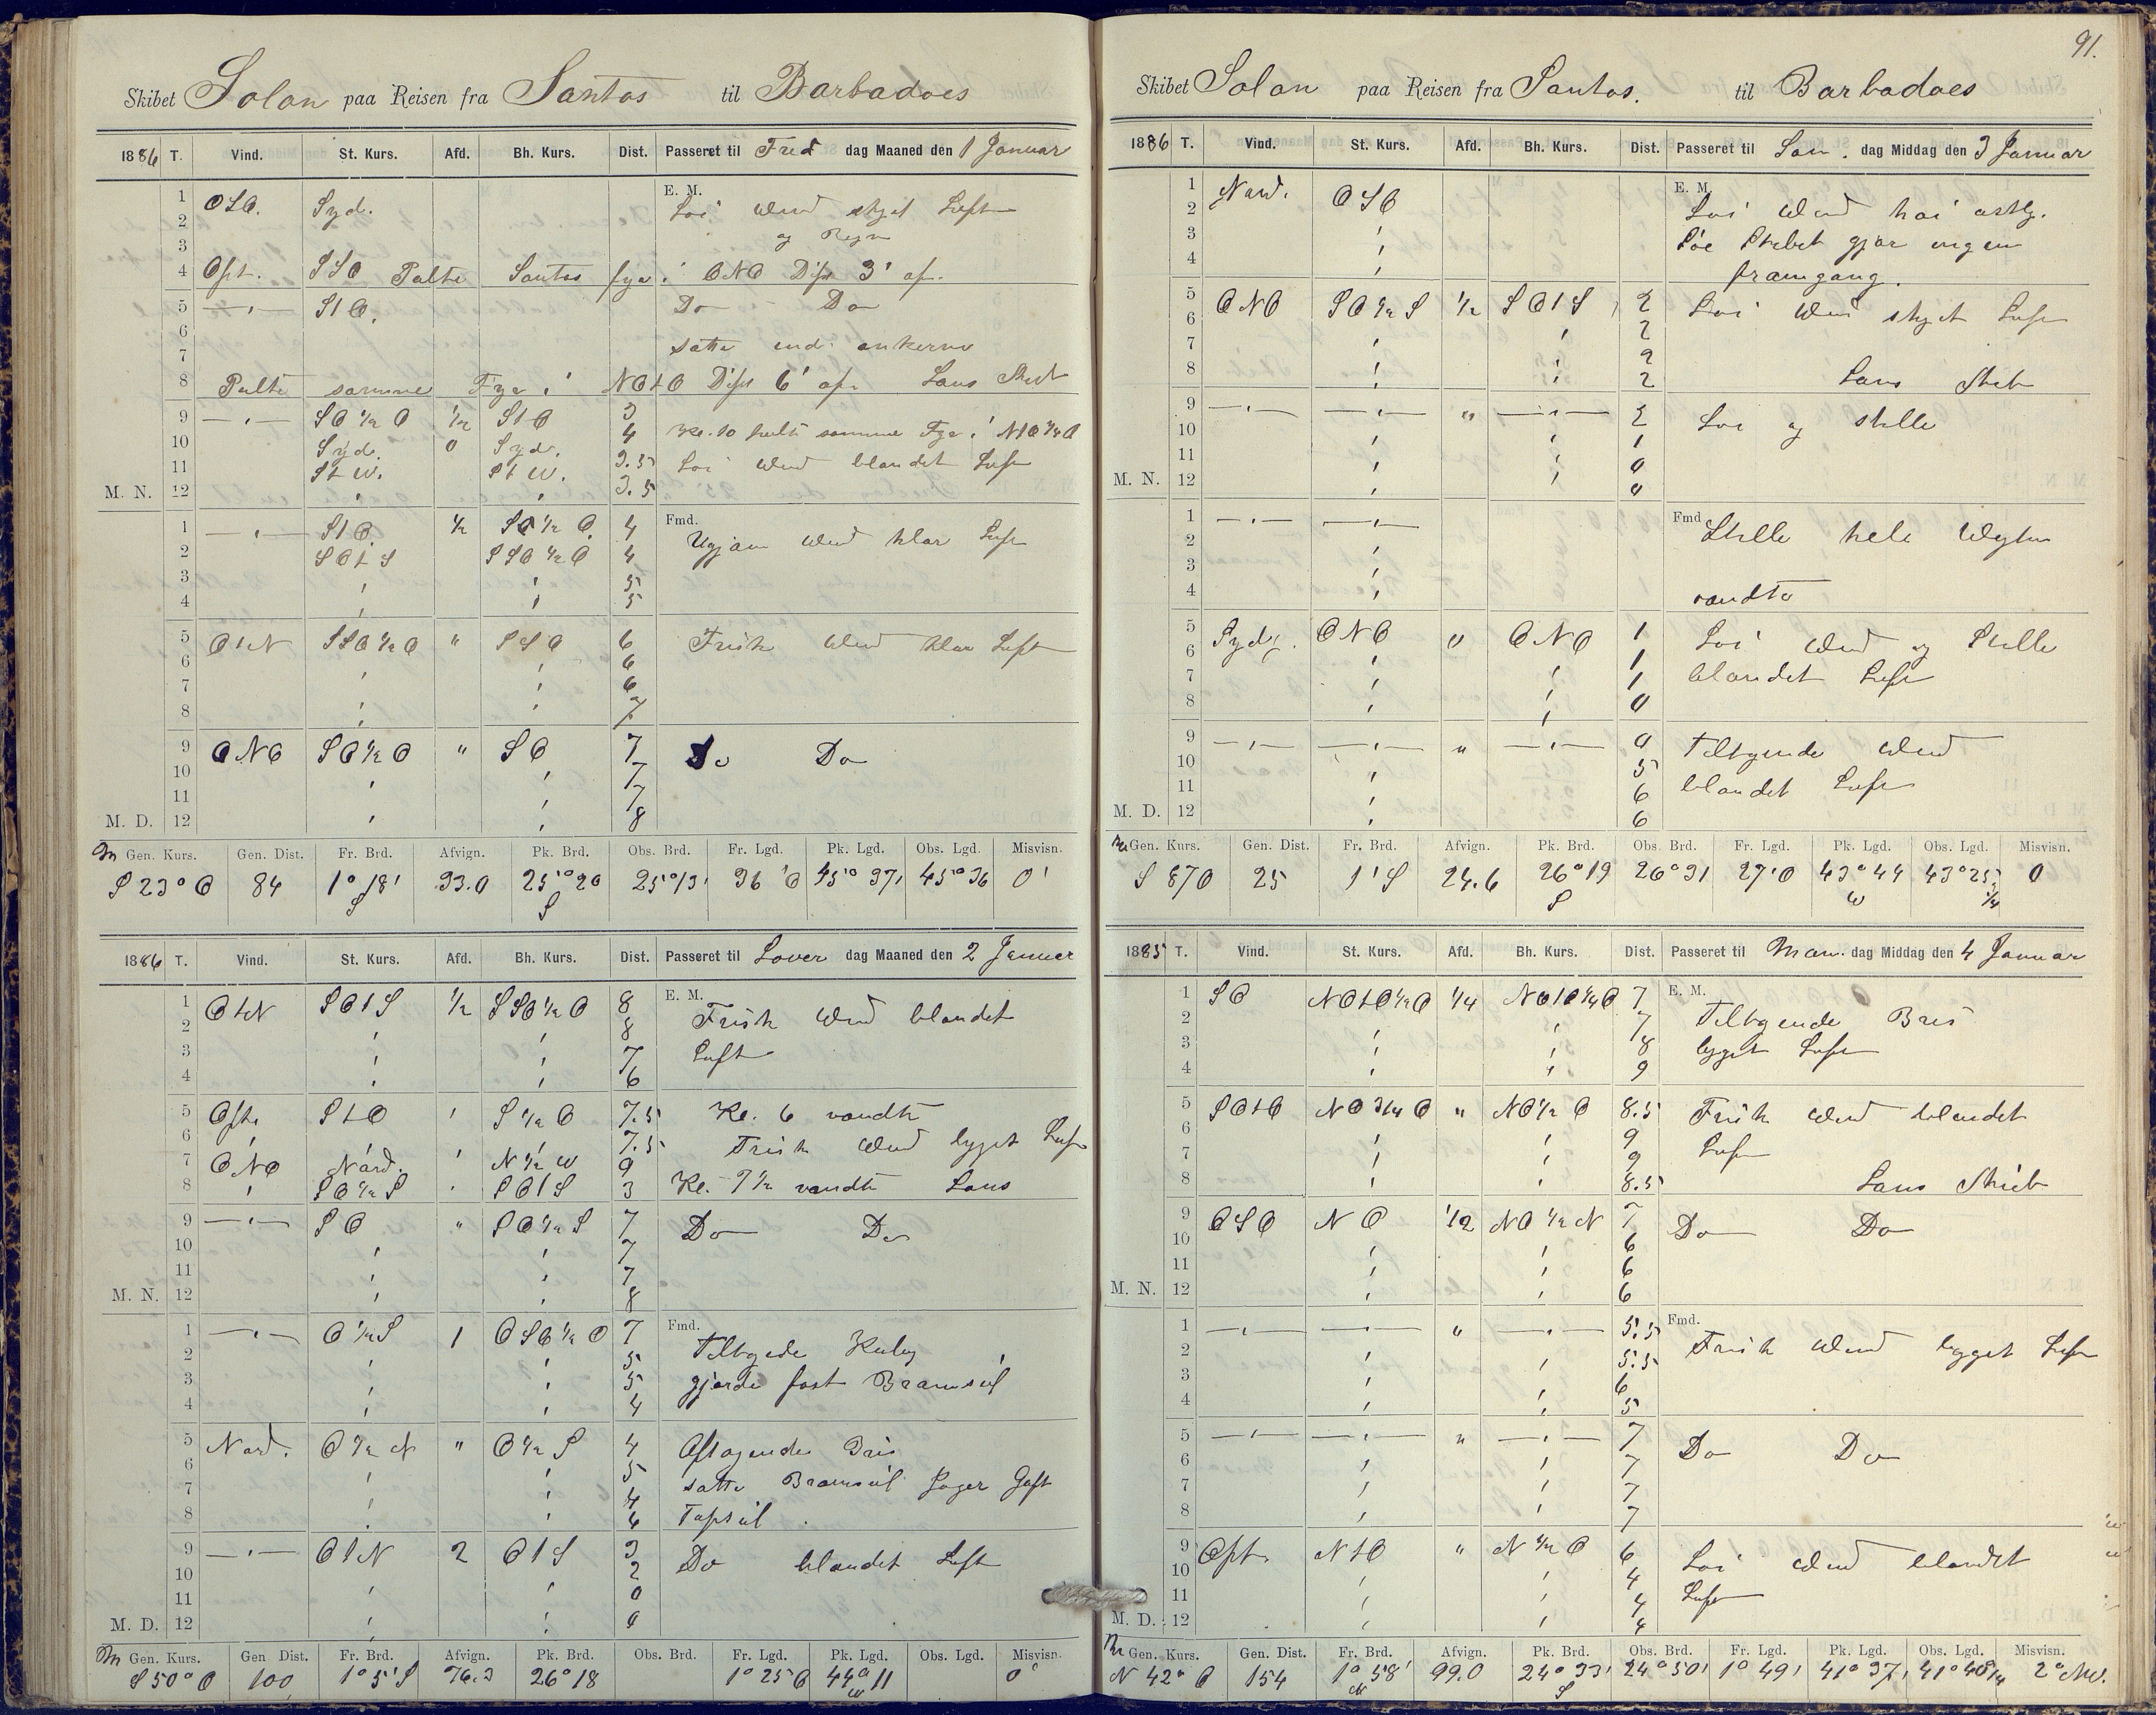 Skibet Solon paa Reisen fra Santos til Barbadoes
1886 T. Vind. St. Kurs. Afd. Bh. Kurs. Dist. Passeret til Fred dag Maaned den 1 Januar
E. M.
1 OSO. Syd. Loi Wind skyet Luft
2 og Regn
3
4 Ost. SSO Peilte Santos fyr i ONO Dist 3' af.
5 —〃— StO. Do — Do
6 satte ind ankerne
7
8 Peilte samme Fyr i NOtO Dist 6' af. Lens Skib
9 —〃— SO ½ O ½ StO 3
10 Syd. 0 Syd. 4 Kl. 10 peilt samme Fyr i NtO ¾ O
11 StW. StW. 3.5 Loi Wind blandet Luft
M. N. 12 〃 〃 3.5
Fmd.
1 —〃— StO. ½ SO ½ O. 4
2 SOtS SSO ½ O 4 Ugjam Wind klar Luft
3 〃 〃 5
4 〃 〃 5
5 OtN SSO ½ O " SSO 6 Frisk Wind klar Luft
6 〃 〃 6
7 〃 〃 6
8 〃 〃 7
9 ONO SO ½ O " SO 7 Do Do
10 〃 〃 7
11 〃 〃 7
M. D. 12 〃 〃 8
M Gen. Kurs. Gen. Dist. Fr. Brd. Afvign. Pk. Brd. Obs. Brd. Fr. Lgd. Pk. Lgd. Obs. Lgd. Misvisn.
S 23° O 84 1° 18' S 33.0 25° 20 S 25° 13' 36' O 45° 37' 45° 36 0'
1886 T. Vind. St. Kurs. Afd. Bh. Kurs. Dist. Passeret til Lover dag Maaned den 2 Januar
E. M.
1 OtN SOtS ½ SSO ½ O 8 Frisk Wind blandet
2 〃 〃 8
3 〃 〃 7 Luft
4 〃 〃 6
5 Ost. StO 〃 S ½ O 7.5 Kl. 6 vendte
6 〃 〃 〃 7.5 Frisk Wind bygget Luft
7 ONO Nord. 〃 N ½ W 9
8 〃 SO ½ S 〃 SOtS 3 Kl. 7½ vendte Lens
9 —〃— SO " SO ½ S 7 Do Do
10 〃 〃 7
11 〃 〃 7
M. N. 12 〃 〃 8
Fmd.
1 —〃— O ½ S 1 OSO ½ O 7 Tiltagede Kuling
2 〃 〃 5
3 〃 〃 5 gjorde fast Bramseil
4 〃 〃 4
5 Nord. O ½ N " O ½ S 4 Aftagende Bris
6 〃 〃 5 satte Bramseil Jager Gaft
7 〃 〃 4
8 〃 〃 4 Topseil.
9 —〃— OtN 2 OtS 3 Do blandet Luft
10 〃 〃 2
11 〃 〃 0
M. D. 12 〃 〃 0
M Gen. Kurs. Gen Dist. Fr. Brd. Afvign. Pk. Brd. Obs. Brd. Fr. Lgd. Pk. Lgd. Obs. Lgd. Misvisn.
S 50° O 100 1° 5' S 76.3 26° 18 1° 25 O 44° 11 W 0°
91.
Skibet Solon paa Reisen fra Santos. til Barbadoes
1886 T. Vind. St. Kurs. Afd. Bh. Kurs. Dist. Passeret til Søn. dag Middag den 3 Januar
E. M.
1 Nord. OSO Loi Wind hoi ostlg.
2 〃 Soe Skibet gjør ingen
3 〃
4 〃 framgang.
5 ONO SO ½ S ½ SOtS 2 Loi Wind skyet Luft
6 〃 〃 2
7 〃 〃 2
8 〃 〃 2 Lens Skib
9 —〃— —〃— " —〃— 2 Loi og stille
10 〃 〃 1
11 〃 〃 0
M. N. 12 〃 〃 0
Fmd
1 —〃— —〃— Stille hele Wagten
2 〃
3 〃
4 〃 vendte
5 Sydl. ONO 0 ONO 1 Loi Wind og Stille
6 〃 〃 1
7 〃 〃 1 blandet Luft
8 〃 〃 0
9 —〃— —〃— " —〃— 0 Tiltagende Wind
10 〃 5
11 〃 6 blandet Luft
M. D. 12 〃 6
M Gen. Kurs. Gen. Dist. Fr. Brd. Afvign. Pk. Brd. Obs. Brd. Fr. Lgd. Pk. Lgd. Obs. Lgd. Misvisn.
S 87 O 25 1' S 24.6 26° 19 S 26° 31 27' O 43° 44 W 43° 25' ¾ 0
1885 T. Vind. St. Kurs. Afd. Bh. Kurs. Dist. Passeret til Man. dag Middag den 4 Januar
E. M.
1 SO NOtO ½ O ¼ NOtO ¼ O 7 Tiltagende Bris
2 〃 〃 7
3 〃 〃 8 bygget Luft
4 〃 〃 9
5 SOtO NO 3/4 O " NO ½ O 8.5 Frisk Wind blandet
6 〃 〃 9
7 〃 〃 9 Luft
8 〃 〃 8.5 Lens Skib
9 OSO NO ½ NO ½ N 7 Do Do
10 〃 〃 6
11 〃 〃 6
M. N. 12 〃 〃 6
Fmd.
1 —〃— —〃— " —〃— 5.5 Frisk Wind bygget Luft
2 〃 〃 5.5
3 〃 6
4 〃 〃 5
5 —〃— —〃— " —〃— 7 Do Do
6 〃 〃 7
7 〃 〃 7
8 〃 〃 7
9 Ost. NtO " N ½ O 6 Loi Wind blandet
10 〃 〃 4
11 〃 〃 4 Luft
M. D. 12 〃 〃 4
M Gen. Kurs. Gen. Dist. Fr. Brd. Afvign. Pk. Brd. Obs. Brd. Fr. Lgd. Pk. Lgd. Obs. Lgd. Misvisn.
N 42° O 154 1° 58' N 99.0 24° 33' S 24° 50' 1° 49' 41° 37' 41° 40' ¼ 2° NW.